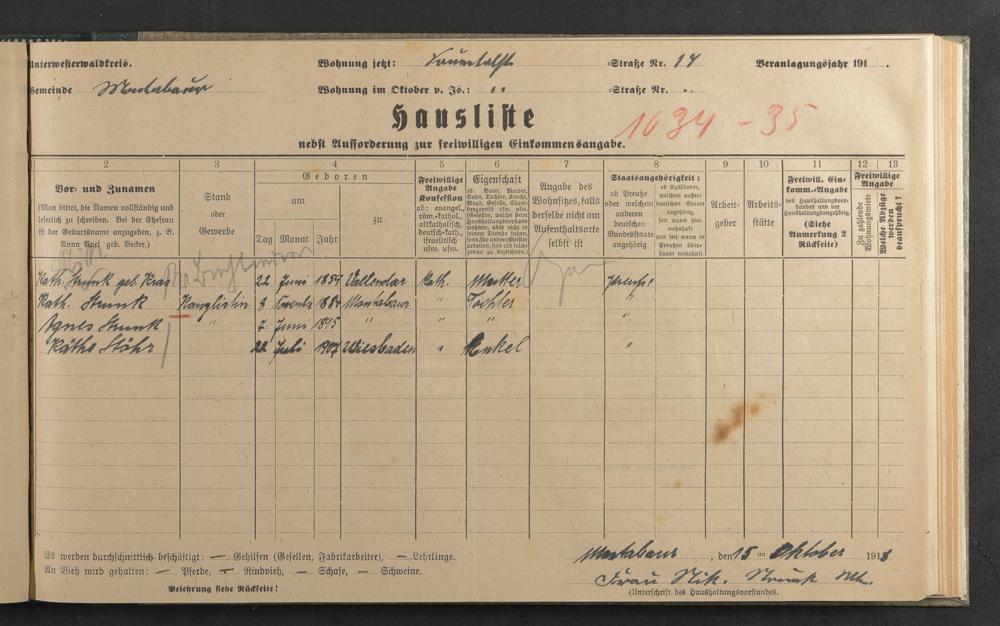 Unterwesterwaldkreis. Wohnung jetzt: Straße Nr. 14 Veranlagungsjahr 191 .
Gemeinde Montabaur Wohnung im Oktober v. Js.: " " Straße Nr. "
Hausliste
1034-35
nebst Aufforderung zur freiwilligen Einkommensangabe.
2 3 4 5 6 7 8 9 10 11 12 13
Vor- und Zunamen
(Man bittet, die Namen vollständig und leserlich zu schreiben. Bei der Ehefrau ist der Geburtsname anzugeben, z. B. Anna Apel geb. Becker.)
Stand oder Gewerbe
Geboren
am zu
Tag Monat Jahr
Freiwillige Angabe Konfession
ob: evangel., röm.-kathol., altkatholisch, deutsch-kath., israelitisch usw.
Eigenschaft
Angabe des Wohnsitzes, falls derselbe nicht am Aufenthaltsorte selbst ist
Staatsangehörigkeit:
ob Preuße oder welchem anderen deutschen Bundesstaate angehörig
Arbeitgeber
Arbeitsstätte
Freiwill. Einkomm.-Angabe
des Haushaltungsvorstandes und der Haushaltungsangehörig.
(Siehe Anmerkung 2 Rückseite)
Freiwillige Angabe
Zu zahlende Wohnungsmiete
Welche Abzüge werden beansprucht?
Kath. Strunk geb. 22 Juni Vallendar Kath. Mutter
Kath. Strunk Kanzlistin 8 Montabaur " Tochter "
Agnes Strunk " 7. Juni " " "
Käthe Stöhr 22 Juli 1907 Wiesbaden " Enkel "
Es werden durchschnittlich beschäftigt: — Gehilfen (Gesellen, Fabrikarbeiter), — Lehrlinge.
An Vieh wird gehalten: — Pferde, — Rindvieh, — Schafe, — Schweine.
Belehrung siehe Rückseite!
Montabaur, den 15 ten Oktober 1918
Frau Nik. Strunk Wwe.
(Unterschrift des Haushaltungsvorstandes.